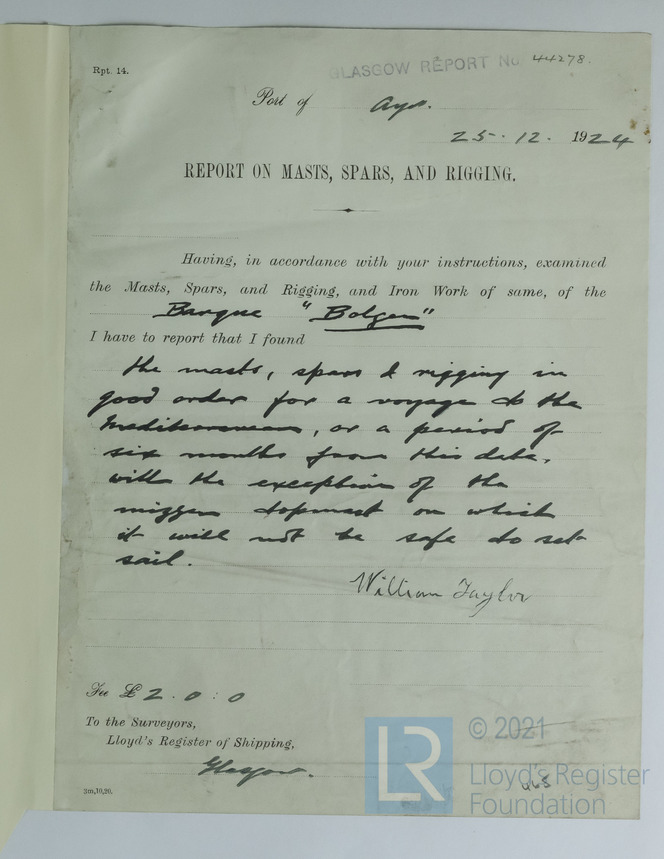 Rpt. 14.
GLASGOW REPORT No 44278.
Port of Ayr.
25.12.1924.
REPORT ON MASTS, SPARS, AND RIGGING.
Having, in accordance with your instructions, examined
the Masts, Spars, and Rigging, and Iron Work of same, of the
Barque "Bolgen"
I have to report that I found
the masts, spars & rigging in
good order for a voyage to the
Mediterranean, or a period of
six months from this date,
with the exception of the
mizzen topmast on which
it will not be safe to set
sail.
William Taylor
Fee £2.0:0
To the Surveyors,
Lloyd's Register of Shipping,
Glasgow.
3m,10,20.
LR
© 2021
Lloyd's Register
Foundation